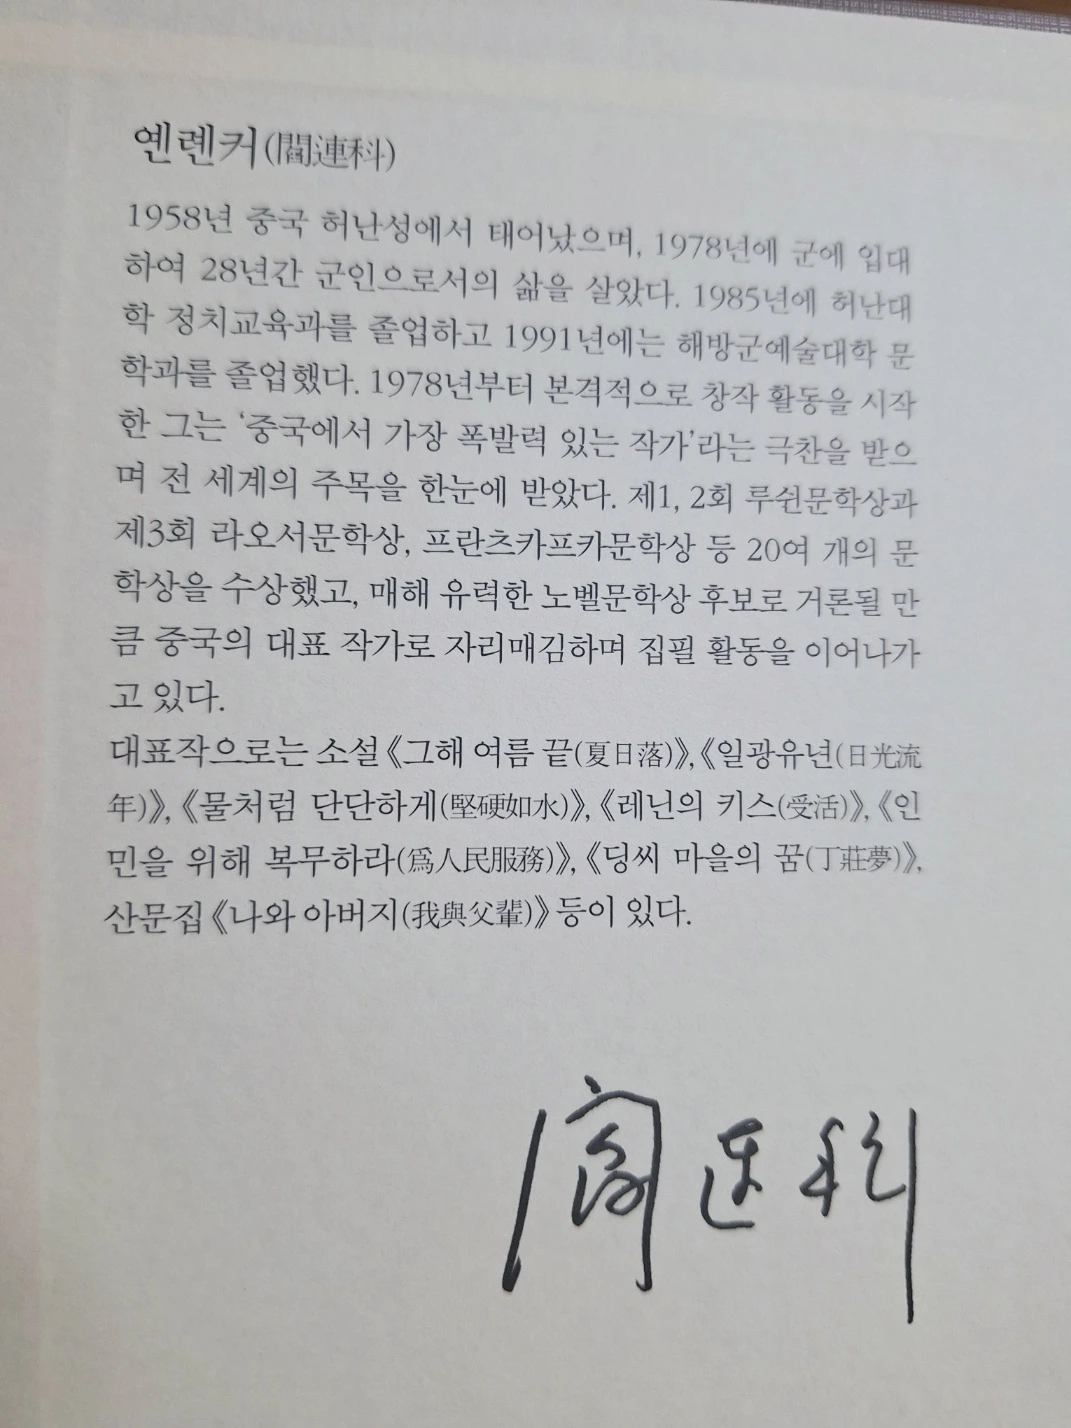 옌롄커(閻連科)
1958년 중국 허난성에서 태어났으며, 1978년에 군에 입대
하여 28년간 군인으로서의 삶을 살았다. 1985년에 허난대
학 정치교육과를 졸업하고 1991년에는 해방군예술대학 문
학과를 졸업했다. 1978년부터 본격적으로 창작 활동을 시작
한 그는 ‘중국에서 가장 폭발력 있는 작가’라는 극찬을 받으
며 전 세계의 주목을 한눈에 받았다. 제1, 2회 루쉰문학상과
제3회 라오서문학상, 프란츠카프카문학상 등 20여 개의 문
학상을 수상했고, 매해 유력한 노벨문학상 후보로 거론될 만
큼 중국의 대표 작가로 자리매김하며 집필 활동을 이어나가
고 있다.
대표작으로는 소설 《그해 여름 끝(夏日落)》, 《일광유년(日光流
年)》, 《물처럼 단단하게(堅硬如水)》, 《레닌의 키스(受活)》, 《인
민을 위해 복무하라(爲人民服務)》, 《딩씨 마을의 꿈(丁莊夢)》,
산문집 《나와 아버지(我與父輩)》 등이 있다.
阎连科